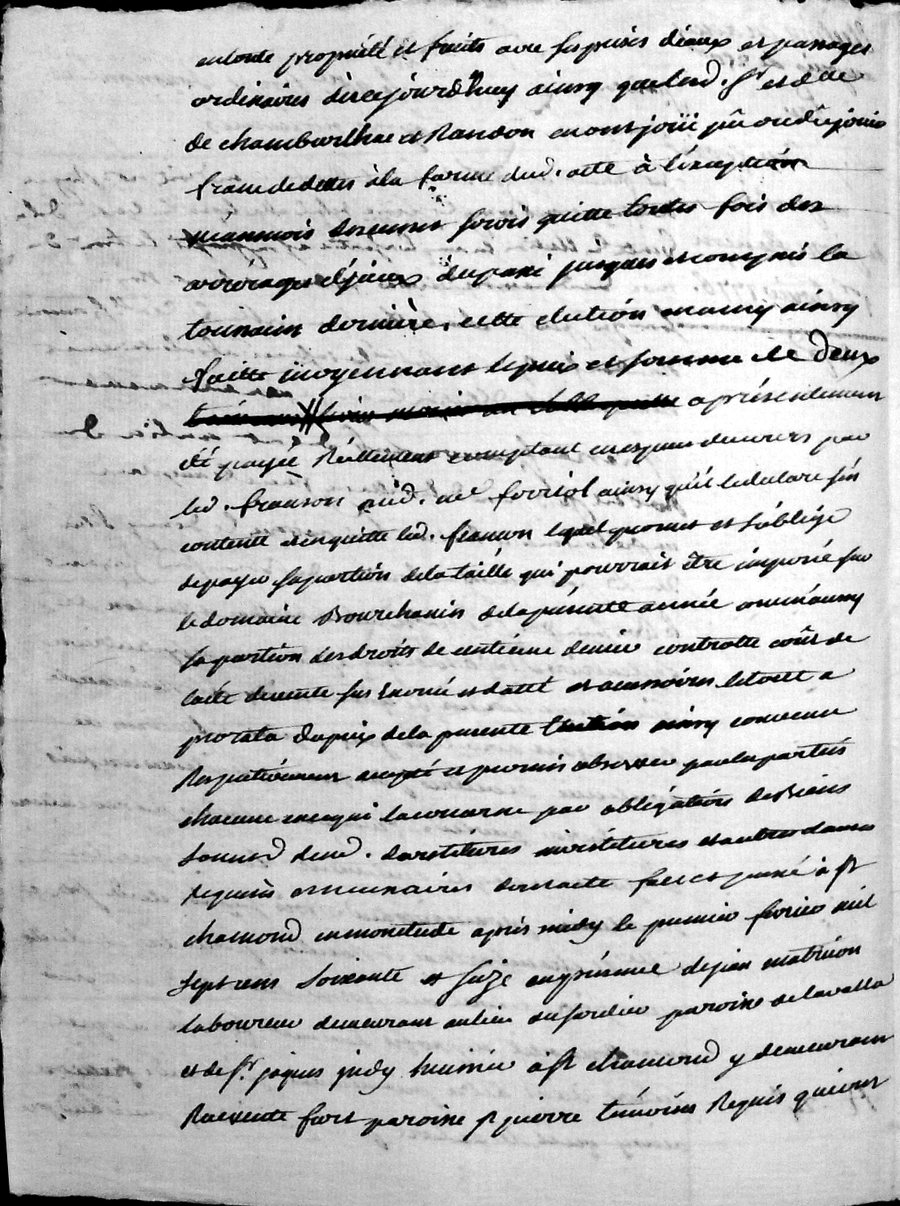 en toute propriété et fruits avec ses prises d'eaux et passages
ordinaires dès ce jourd'huy ainsy que led. sr et dlle
de chambarlhac et Randon en ont joüi pû ou dû joüir
franc de dettes à la forme dud. acte à l'exception
néanmois servis quitte toutes fois des
arrerages d'jceux du passé jusques et compris la
toussain dernière, cette élection en amy ainsy
faitte moyennant le prix et somme de deux
a présentement
été payée Réellement comptant en espèces de cours par
led franson aud. me forriol ainsy qu'il le déclare s'en
contente et en quitte led. franson lequel promet et s'oblige
de payer sa portion de la taille qui pourroit être imposée sur
le domaine Bourchanin de la présente année comme aussy
sa portion des droits de centième denier controlle coûts de
l'acte de vente sus énoncé et datté et accessoires le tout a
prorata du prix de la présente élection ainsy convenu
Respectivement accepté et promis observer par les parties
chacune en ce qui la concerne par obligation de Biens
soumis. deüe. et autres clauses
Requises et nécessaires dont acte fait et passé à st
chamond en mon étude après midy le premier février mil
sept cens soixante et seize en présence de jean matricon
laboureur demeurant au lieu du sardier paroisse de lavalla
et de sr. jaques judy huissier à st chamond y demeurant
Rüe sente fort paroisse st pierre témoins Requis qui ont